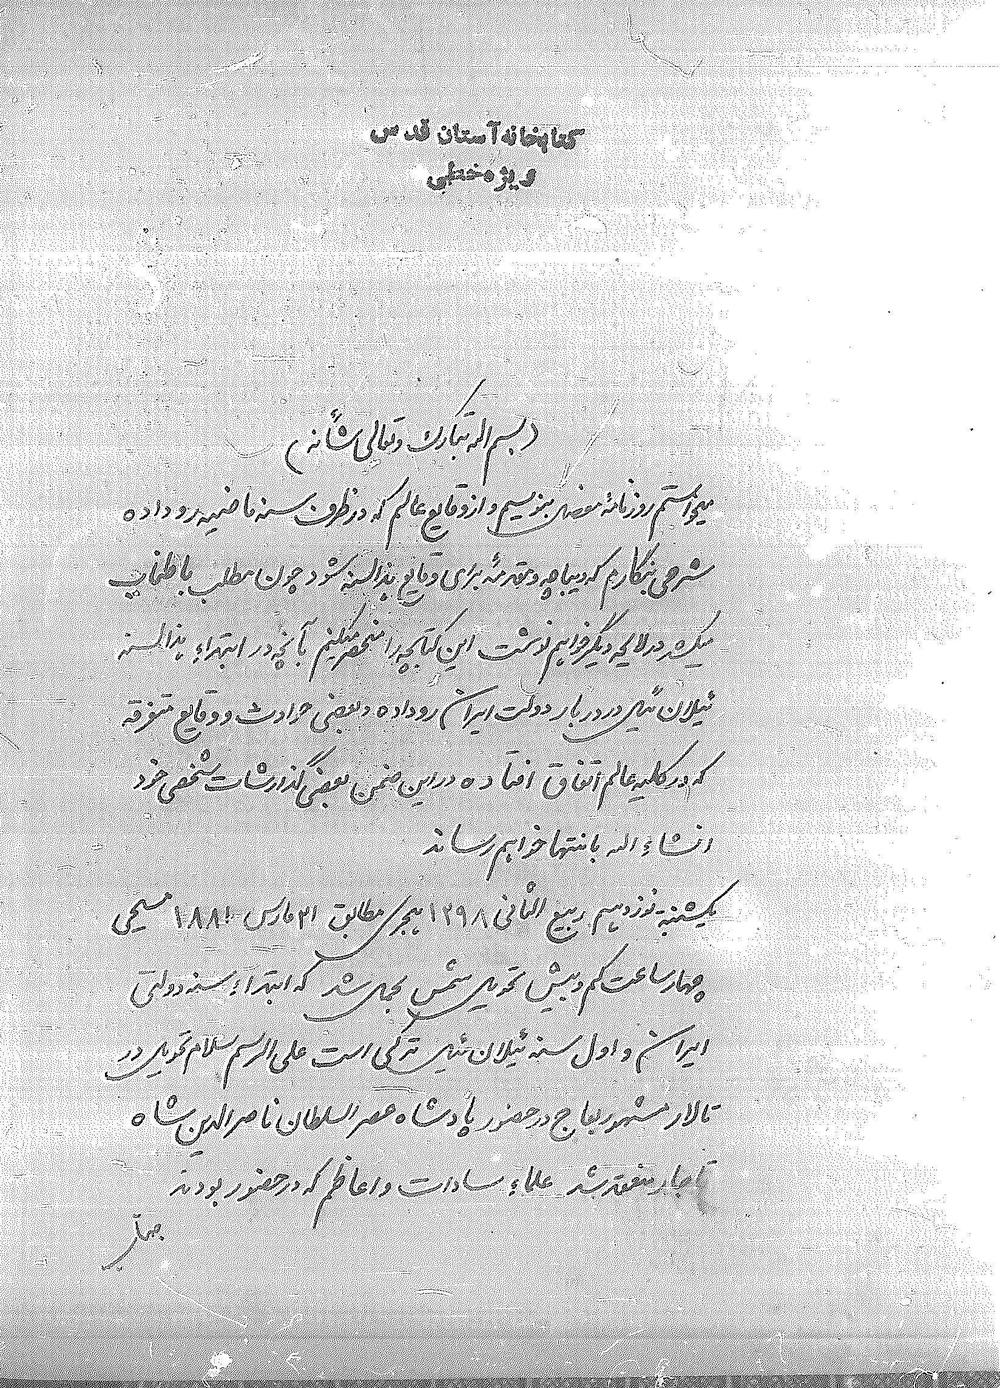 کتابخانه آستان قدس
ویژه خطی
(بسم اله تبارک و تعالی شأنه)
میخواستم روزنامهٔ مفصلی بنویسم و از وقایع عالم که در ظرف سنه ماضیه رو داده
شرحی بنگارم که دیباچه و مقدمهٔ برای وقایع هذالسنه شود چون مطلب باطناب
میکشد در لایحه دیگر خواهم نوشت این کتابچه را منحصر میکنم بآنچه در ابتداء هذالسنه
ئیلان ئیل در دربار دولت ایران رو داده و بعضی حوادث و وقایع متفرقه
که در کلیه عالم اتفاق افتاده در این ضمن بعضی گذارشات شخصی خود
انشاء اله بانتها خواهم رساند
یکشنبه نوزدهم ربیع الثانی ۱۲۹۸ هجری مطابق ۲۱ مارس ۱۸۸۱ مسیحی
چهار ساعت کم و بیش تحویل شمس بحمل شد که ابتداء سنه دولتی
ایران و اول سنه ئیلان ئیل ترکی است علی الرسم سلام تحویل در
تالار مشهور بعاج در حضور پادشاه عصر السلطان ناصرالدین شاه
قاجار منعقد شد علماء سادات و اعاظم که در حضور بودند